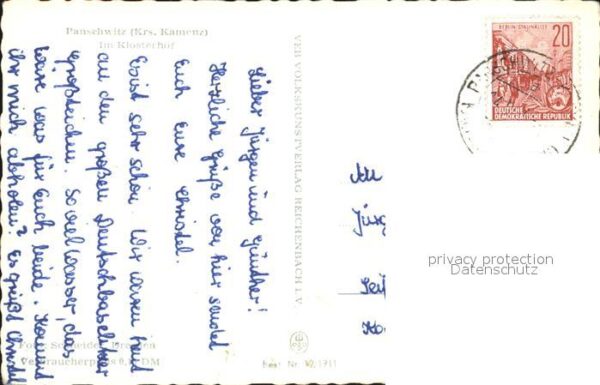 Panschwitz (Krs. Kamenz)
Im Klosterhof
Lieber Jürgen und Günther!
Herzliche Grüße von hier sendet
Euch Eure Christel.
Es ist sehr schön. Wir waren heut
an den großen Deutschbaselitzer
Großteichen. So viel Wasser, das
wäre was für Euch beide. Kommt
ihr mich abholen? Es grüßt Christel
Foto: Schneider, Dresden
Verbraucherpreis DM
VEB VOLKSKUNSTVERLAG REICHENBACH I. V.
Best. Nr.
BERLIN STALINALLEE
20
DEUTSCHE
DEMOKRATISCHE REPUBLIK
privacy protection
Datenschutz